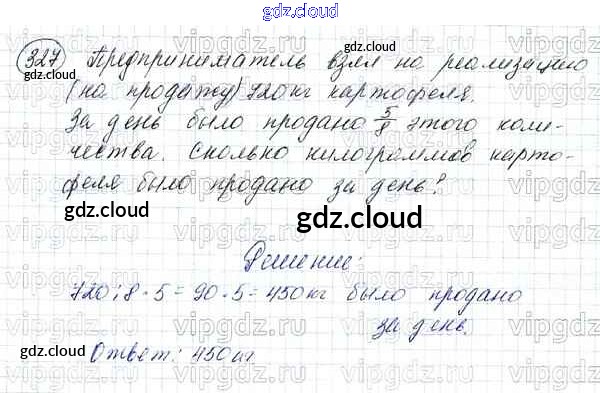 gdz.cloud
327 Предприниматель взял на реализацию
(на продажу) 720 кг картофеля.
За день было продано 5/8 этого коли-
чества. Сколько килограммов карто-
феля было продано за день?
gdz.cloud
gdz.cloud
Решение:
720 : 8 · 5 = 90 · 5 = 450 кг было продано
за день.
gdz.cloud
Ответ: 450 кг
gdz.cloud